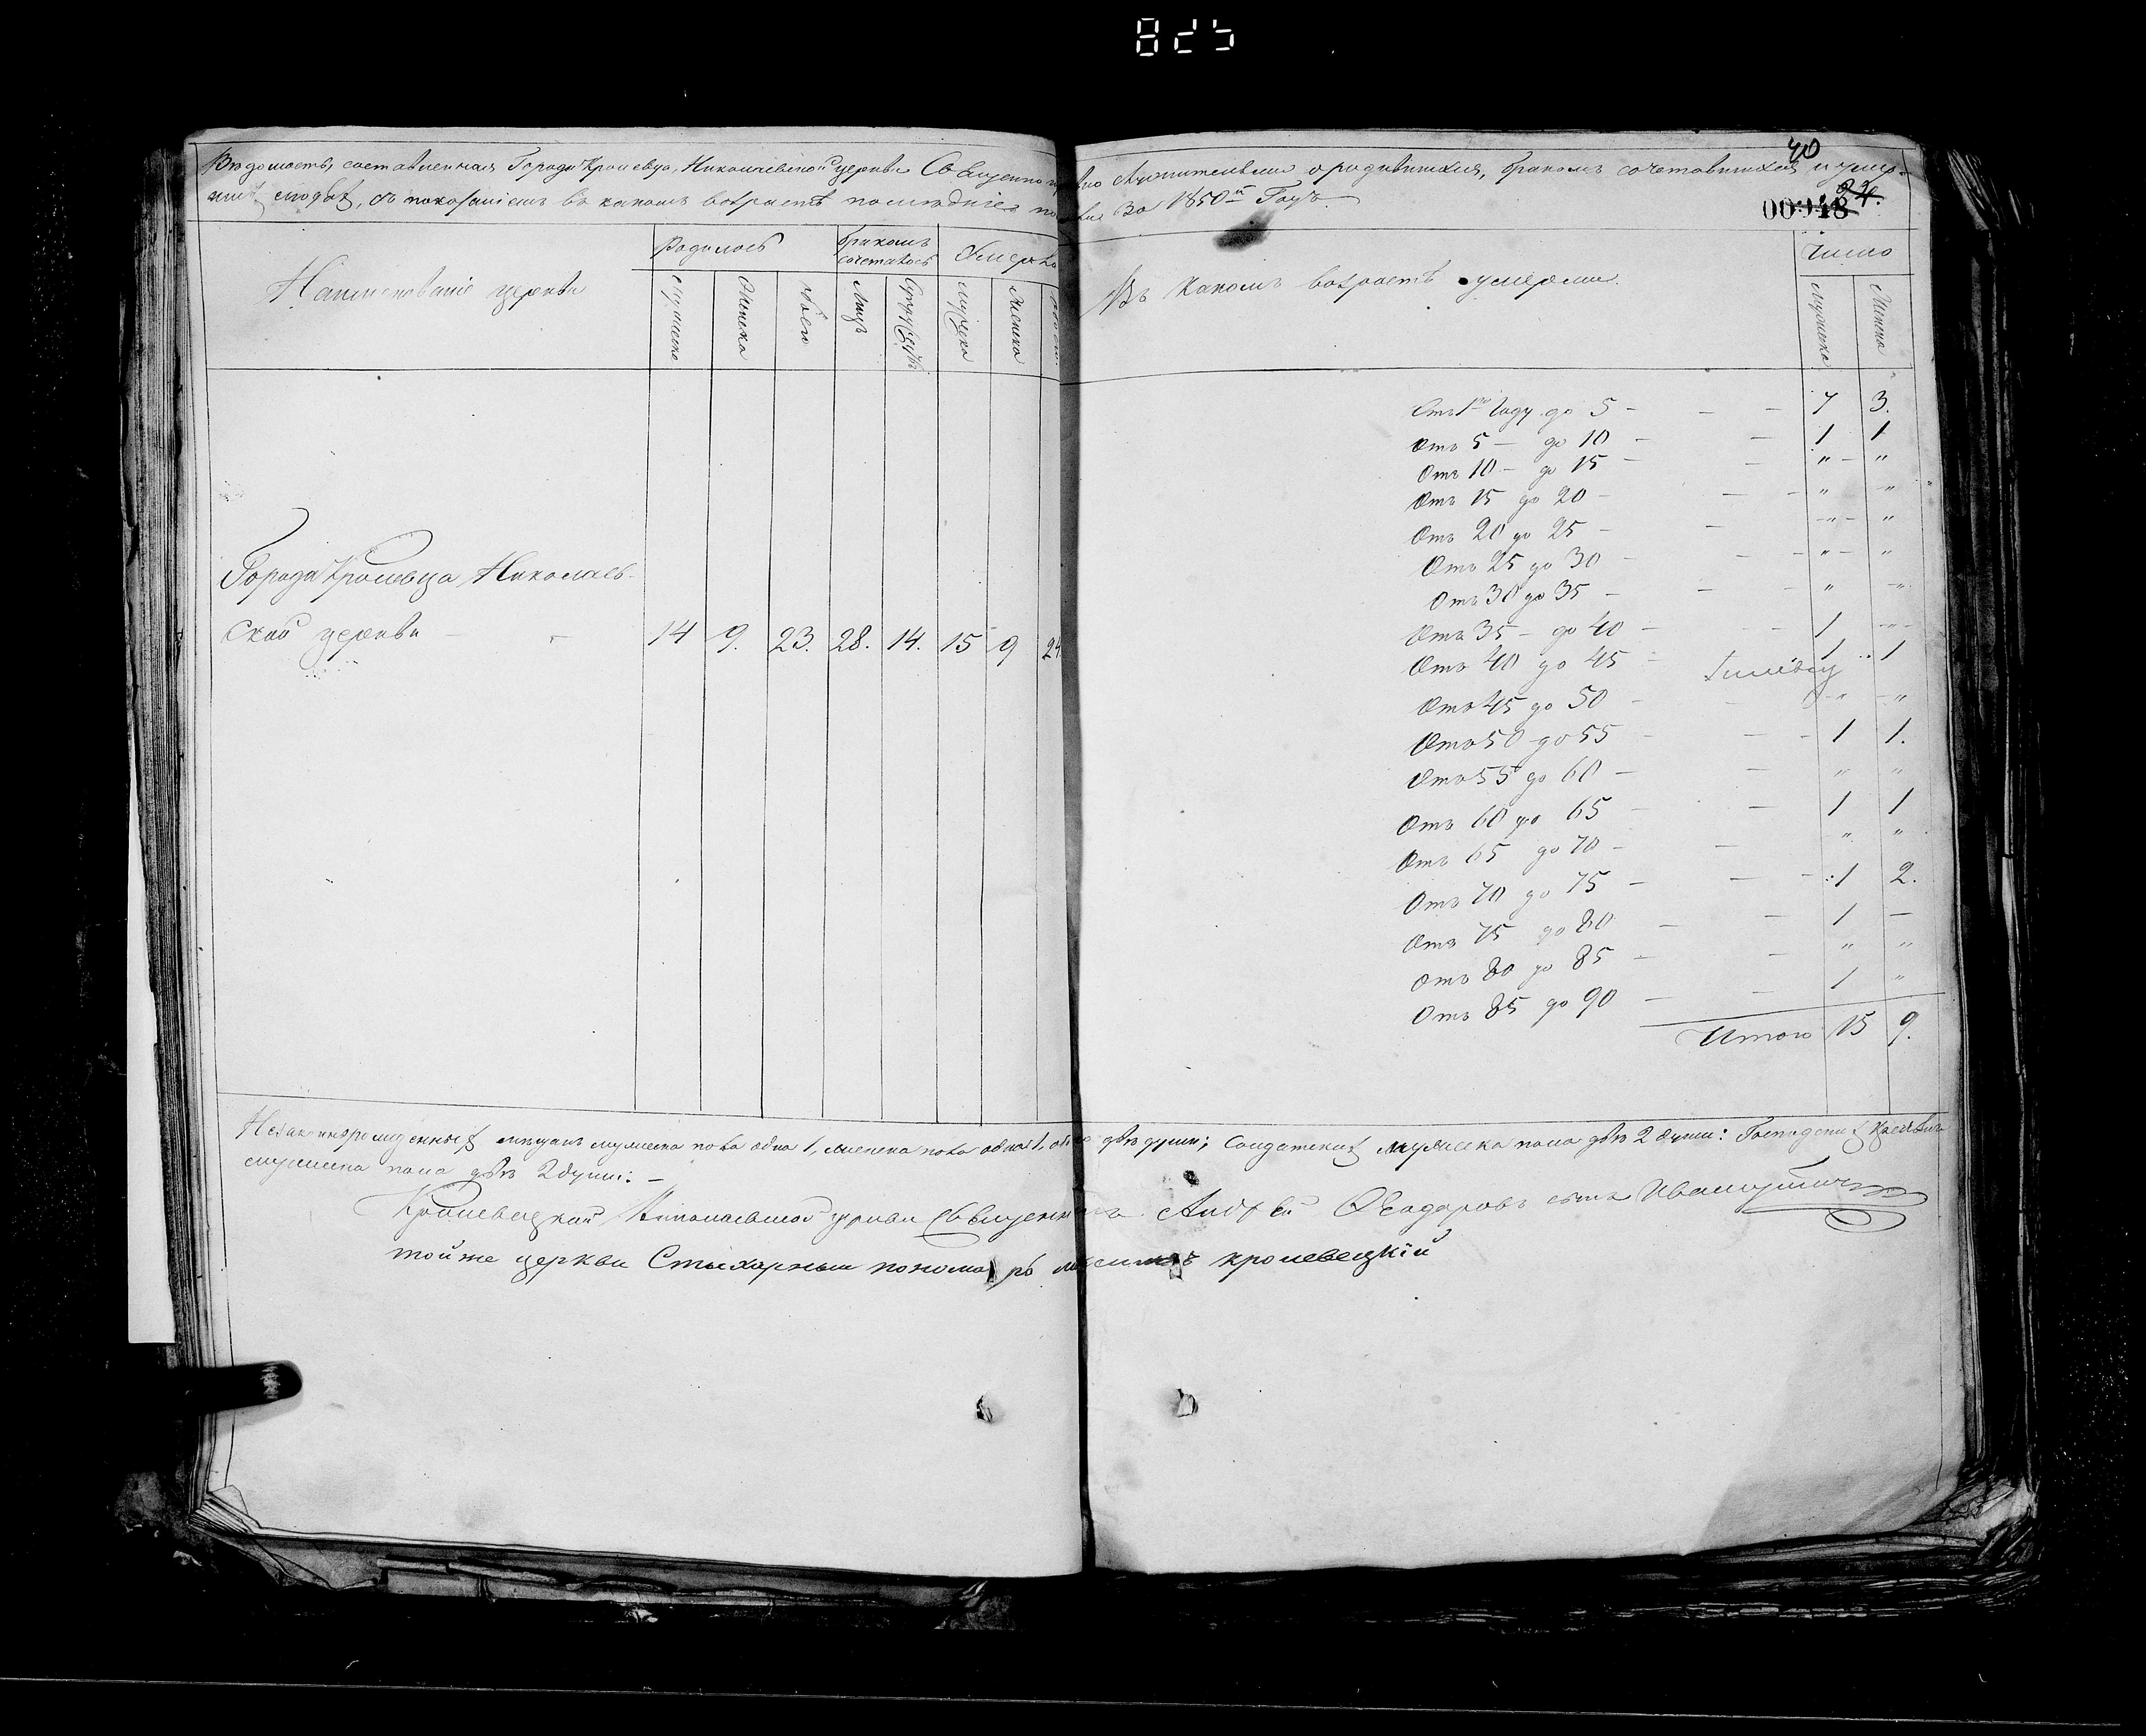 825
40
00048
Вѣдомость, составленная Города Кролевца, Николаевской церкви Священно служителями о родившихся, бракомъ сочетавшихся и умер-
шихъ людяхъ, съ показаніемъ въ какомъ возрастѣ послѣдніе За 1850й Годъ.
Наименованіе церкви
Родилось
бракомъ сочеталось
Умерло
мужеска
Женска
обоего
Лицъ
Супружествъ
мужеска
Женска
обоего
Въ какомъ возрастѣ умерли.
Число
мужеска
Женска
Города Кролевца Николаев-
ской церкви - - 14 9. 23. 28. 14. 15 9 24
Отъ 1го Году до 5 - - - 7 3.
Отъ 5 - до 10 - - 1 1
Отъ 10 - до 15 - - " - "
Отъ 15 до 20 - - - " - "
Отъ 20 до 25 - - - " - "
Отъ 25 до 30 - - - " - "
Отъ 30 до 35 - - - " - "
Отъ 35 - до 40 - - - 1 - " -
Отъ 40 до 45 - 1 1
Отъ 45 до 50 - - - " - "
Отъ 50 до 55 - - - 1 1.
Отъ 55 до 60 - - " "
Отъ 60 до 65 - - 1 1
Отъ 65 до 70 - - " "
Отъ 70 до 75 - - - 1 2.
Отъ 75 до 80 - - 1 -
Отъ 80 до 85 - - " "
Отъ 85 до 90 - - 1 "
Итого 15 9.
Незаконнорожденныхъ мѣщанъ мужеска пола одна 1, женска пола одна 1, обоего двѣ души; Солдатскихъ мужеска пола двѣ 2 души: Господскихъ крестьянъ
мужеска пола двѣ 2 души: -
Кролевецкой Николаевской церкви Священникъ Андрей Феодоровъ сынъ
тойже церкви Стихарный пономарь Максимъ Кролевецкій